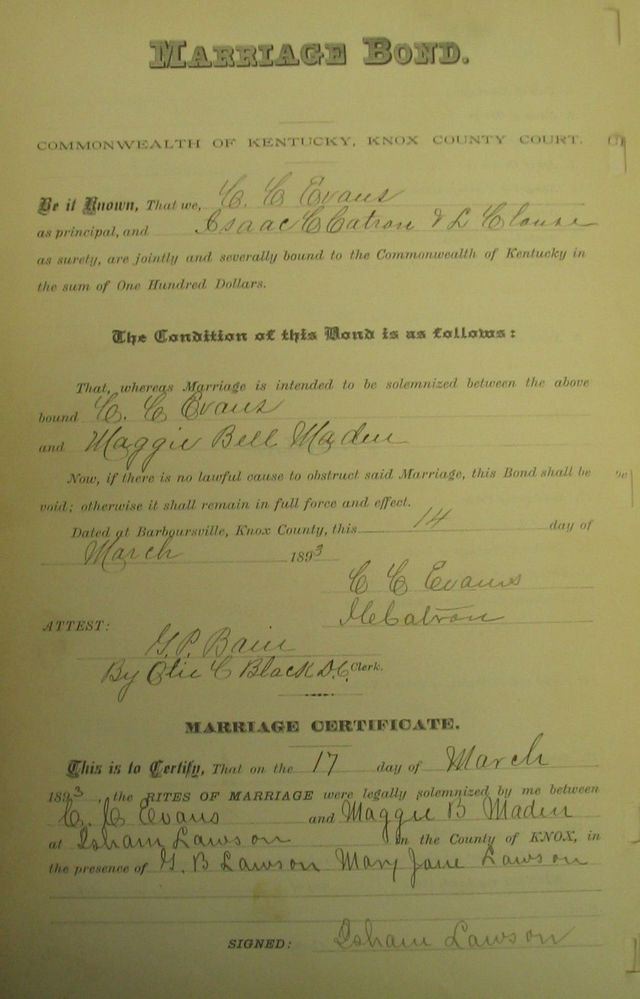 MARRIAGE BOND.
COMMONWEALTH OF KENTUCKY, KNOX COUNTY COURT.
Be it Known, That we, C. C Evans
as principal, and Isaac C Catron & L Clouse
as surety, are jointly and severally bound to the Commonwealth of Kentucky in
the sum of One Hundred Dollars.
The Condition of this Bond is as follows:
That, whereas Marriage is intended to be solemnized between the above
bound C. C Evans
and Maggie Bell Maden
Now, if there is no lawful cause to obstruct said Marriage, this Bond shall be
void; otherwise it shall remain in full force and effect.
Dated at Barboursville, Knox County, this 14 day of
March 1893
C C Evans
Catron
ATTEST:
G. P. Bain
By Olie C Black D.C. Clerk.
MARRIAGE CERTIFICATE.
This is to Certify, That on the 17 day of March
1893, the RITES OF MARRIAGE were legally solemnized by me between
C. C Evans and Maggie B Maden
at Isham Lawson in the County of KNOX, in
the presence of G. B Lawson Mary Jane Lawson
SIGNED: Isham Lawson